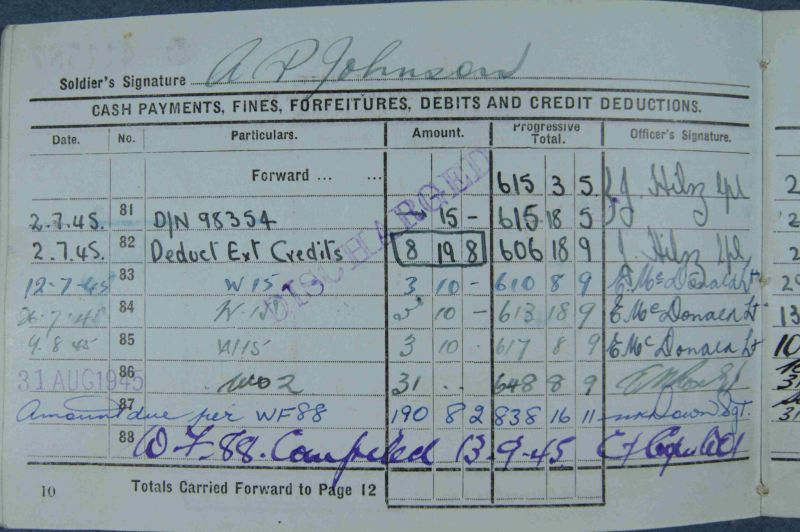 Soldier's Signature A P Johnson
CASH PAYMENTS, FINES, FORFEITURES, DEBITS AND CREDIT DEDUCTIONS.
Date. No. Particulars. Amount. Progressive Total. Officer's Signature.
Forward ... ... 615 3 5
2.7.45. 81 D/N 98354 15 - 615 18 5
2.7.45. 82 Deduct Ext Credits 8 19 8 606 18 9
12.7.45 83 W15 3 10 - 610 8 9 E McDonald Lt
26.7.45 84 3 10 - 613 18 9 E McDonald Lt
9.8.45 85 3 10 . 617 8 9 E McDonald Lt
31 AUG 1945 86 31 . . 648 8 9
Amount due per 87 WF88 190 8 2 838 16 11 unknown Sgt.
88 W F. 88. Compiled 13-9-45
DISCHARGED
10 Totals Carried Forward to Page 12